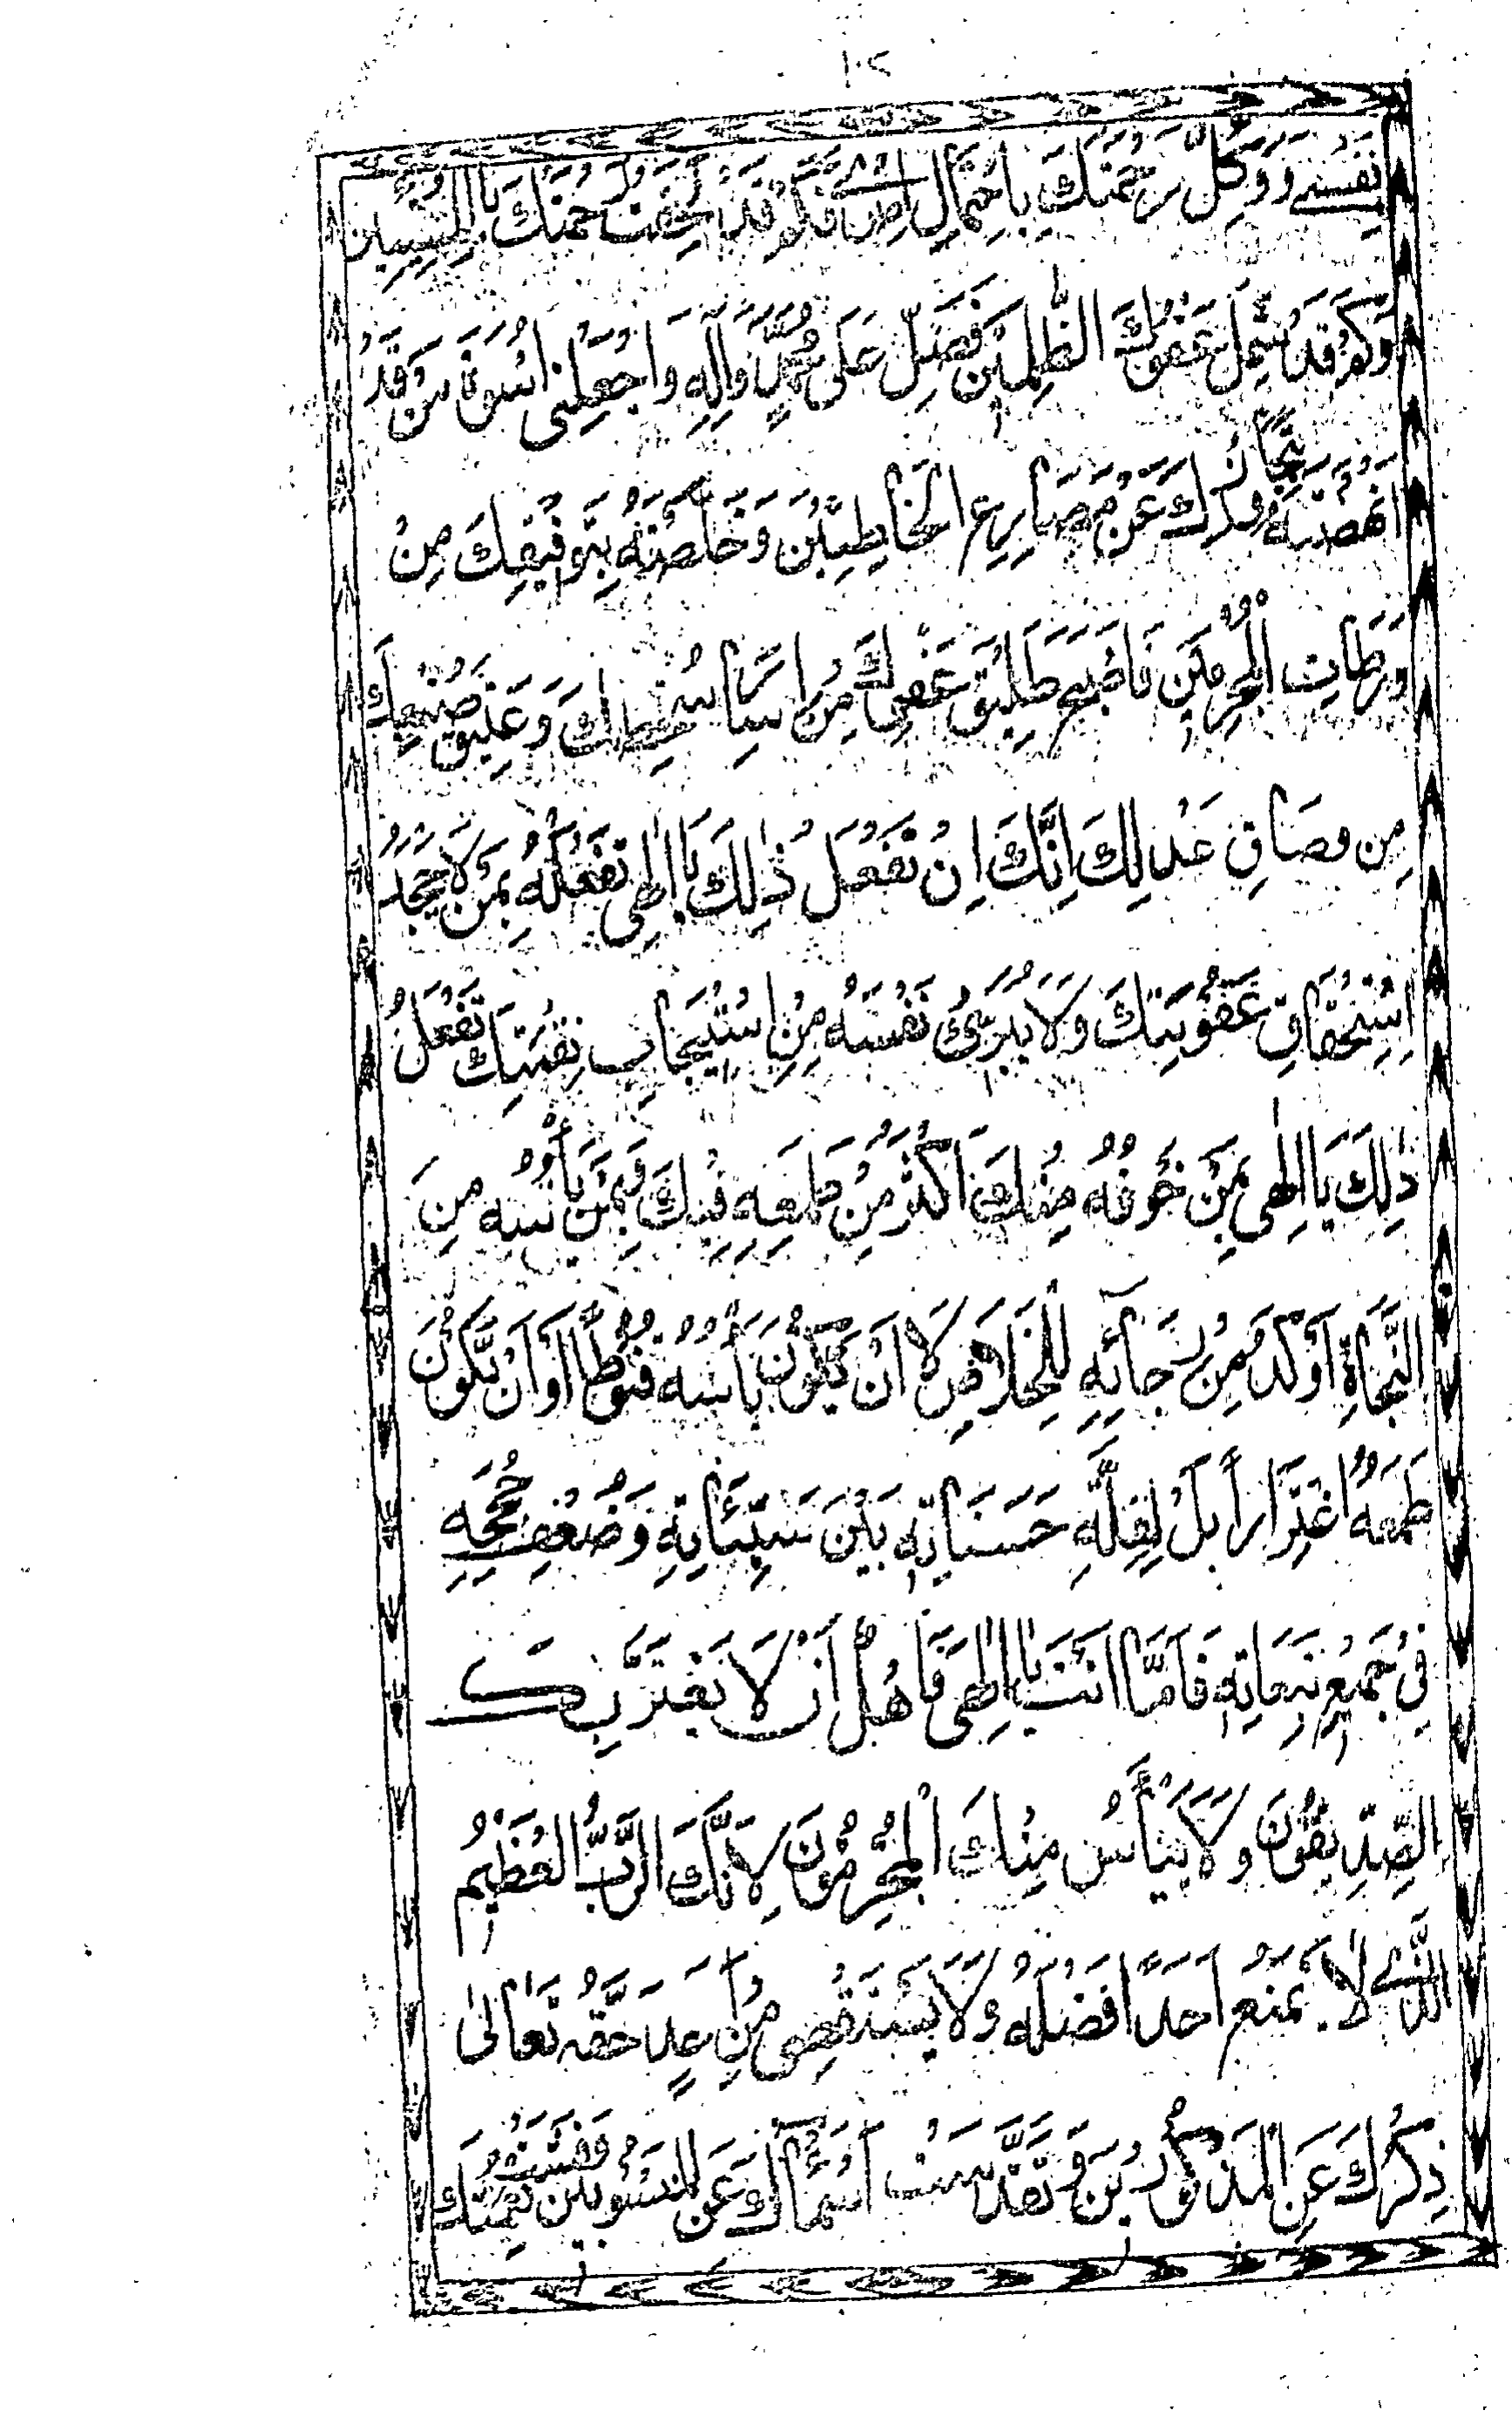 ١٠٢
نَفْسِي وَوَكِّلْ رَحْمَتَكَ بِاحْتِمَالِ اِصْرِي فَكَمْ قَدْ لَحِقَتْ رَحْمَتُكَ بِالْمُسِيئِينَ
وَكَمْ قَدْ شَمِلَ عَفْوُكَ الظّٰلِمِيْنَ فَصَلِّ عَلٰى مُحَمَّدٍ وَاٰلِهِ وَاجْعَلْنِي اُسْوَةَ مَنْ قَدْ
اَنْهَضْتَهُ بِتَجَاوُزِكَ عَنْ مَصَارِعِ الْخَاطِئِيْنَ وَخَلَّصْتَهُ بِتَوْفِيْقِكَ مِنْ
وَرَطَاتِ الْمُجْرِمِيْنَ فَاَصْبَحَ طَلِيْقَ عَفْوِكَ مِنْ اِسَارِ سُخْطِكَ وَعَتِيْقَ صُنْعِكَ
مِن وِصَاقِ عَدْلِكَ اِنَّكَ اِنْ تَفْعَلْ ذٰلِكَ يَا اِلٰهِي تَفْعَلْهُ بِمَنْ لَا يَجْحَدُ
اِسْتِحْقَاقَ عُقُوْبَتِكَ وَلَا يُبَرِّئُ نَفْسَهُ مِنِ اسْتِيْجَابِ نَقِمَتِكَ تَفْعَلُ
ذٰلِكَ يَا اِلٰهِي بِمَنْ خَوْفُهُ مِنْكَ اَكْثَرُ مِنْ طَمَعِهِ فِيْكَ وَبِمَنْ يَأْسُهُ مِنَ
النَّجَاةِ اَوْكَدُ مِنْ رَجَآئِهِ لِلْخَلَاصِ لَا اَنْ يَكُوْنَ يَأْسُهُ قُنُوْطًا اَوْ اَنْ يَّكُوْنَ
طَمَعُهُ اغْتِرَارًا بَلْ لِقِلَّةِ حَسَنَاتِهِ بَيْنَ سَيِّئَاتِهِ وَضُعْفِ حُجَجِهِ
فِيْ جَمِيْعِ تَبِعَاتِهِ فَاَمَّا اَنْتَ يَا اِلٰهِيْ فَاَهْلٌ اَنْ لَا يَغْتَرَّ بِكَ
الصِّدِّيْقُوْنَ وَلَا يَيْأَسُ مِنْكَ الْمُجْرِمُوْنَ لِاَنَّكَ الرَّبُّ الْعَظِيْمُ
الَّذِي لَا يَمْنَعُ اَحَدًا فَضْلَهُ وَلَا يَسْتَقْصِى مِنْ اَحَدٍ حَقَّهُ تَعَالٰى
ذِكْرُكَ عَنِ الْمَذْكُوْرِيْنَ وَتَقَدَّسَتْ اَسْمَآئُكَ عَنِ الْمَنْسُوْبِيْنَ وَفَشَتْ نِعْمَتُكَ